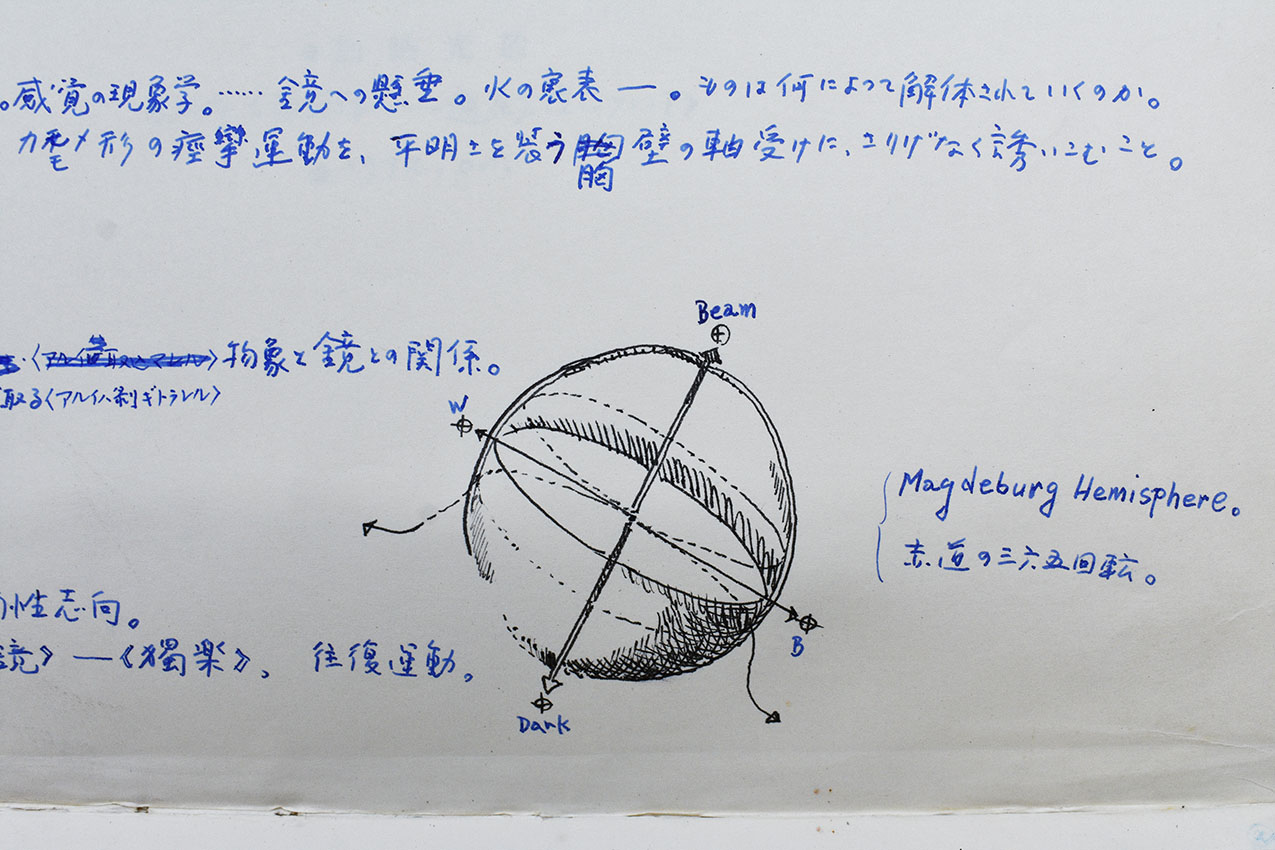 。感覚の現象学。…… 鏡への懸垂。火の裏表 ―。ものは何によって解体されていくのか。
カモメ形の痙攣運動を、平明さを装う胸壁の軸受けに、さりげなく誘いこむこと。
物象と鏡との関係。
取る〈アルイハ剥ギトラレル〉
Beam
W
Magdeburg Hemisphere.
赤道の三六五回転。
性志向。
鏡》―《獨楽》、 往復運動。
B
Dark